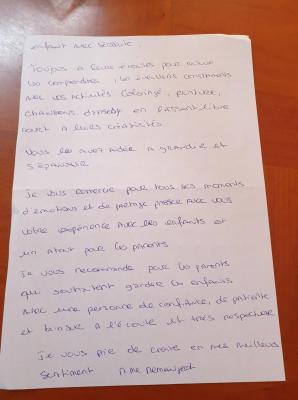 enfant avec sécurité.
Toujours à leurs écoutes pour mieux
les comprendres, les éveillers constaments
avec des activités coloriage, peinture,
chansons, dansety en laissant libre
court à leurs créativités
Vous les avez aider à grandir et
s'épanouir
Je vous remercie pour tous ses moments
d'émotions et de partage passée avec vous
votre expérience avec les enfants est
un atout pour les parents
Je vous recommande pour les parents
qui souhaitent garder les enfants
avec une personne de confiance, de patiente
et bonne à l'écoute et très respectueuse
Je vous prie de croire en mes meilleurs
sentiment Mme